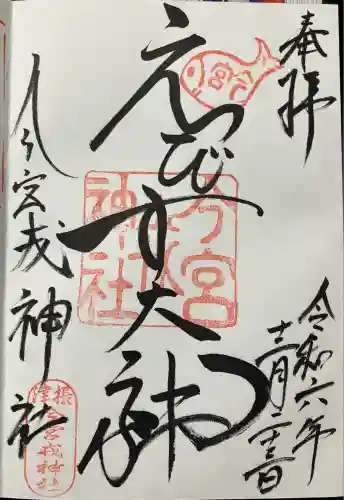 奉拝
今宮
えびす大神
今宮戎神社
令和六年
十二月二十三日
今宮戎神社
摂津
今宮戎神社